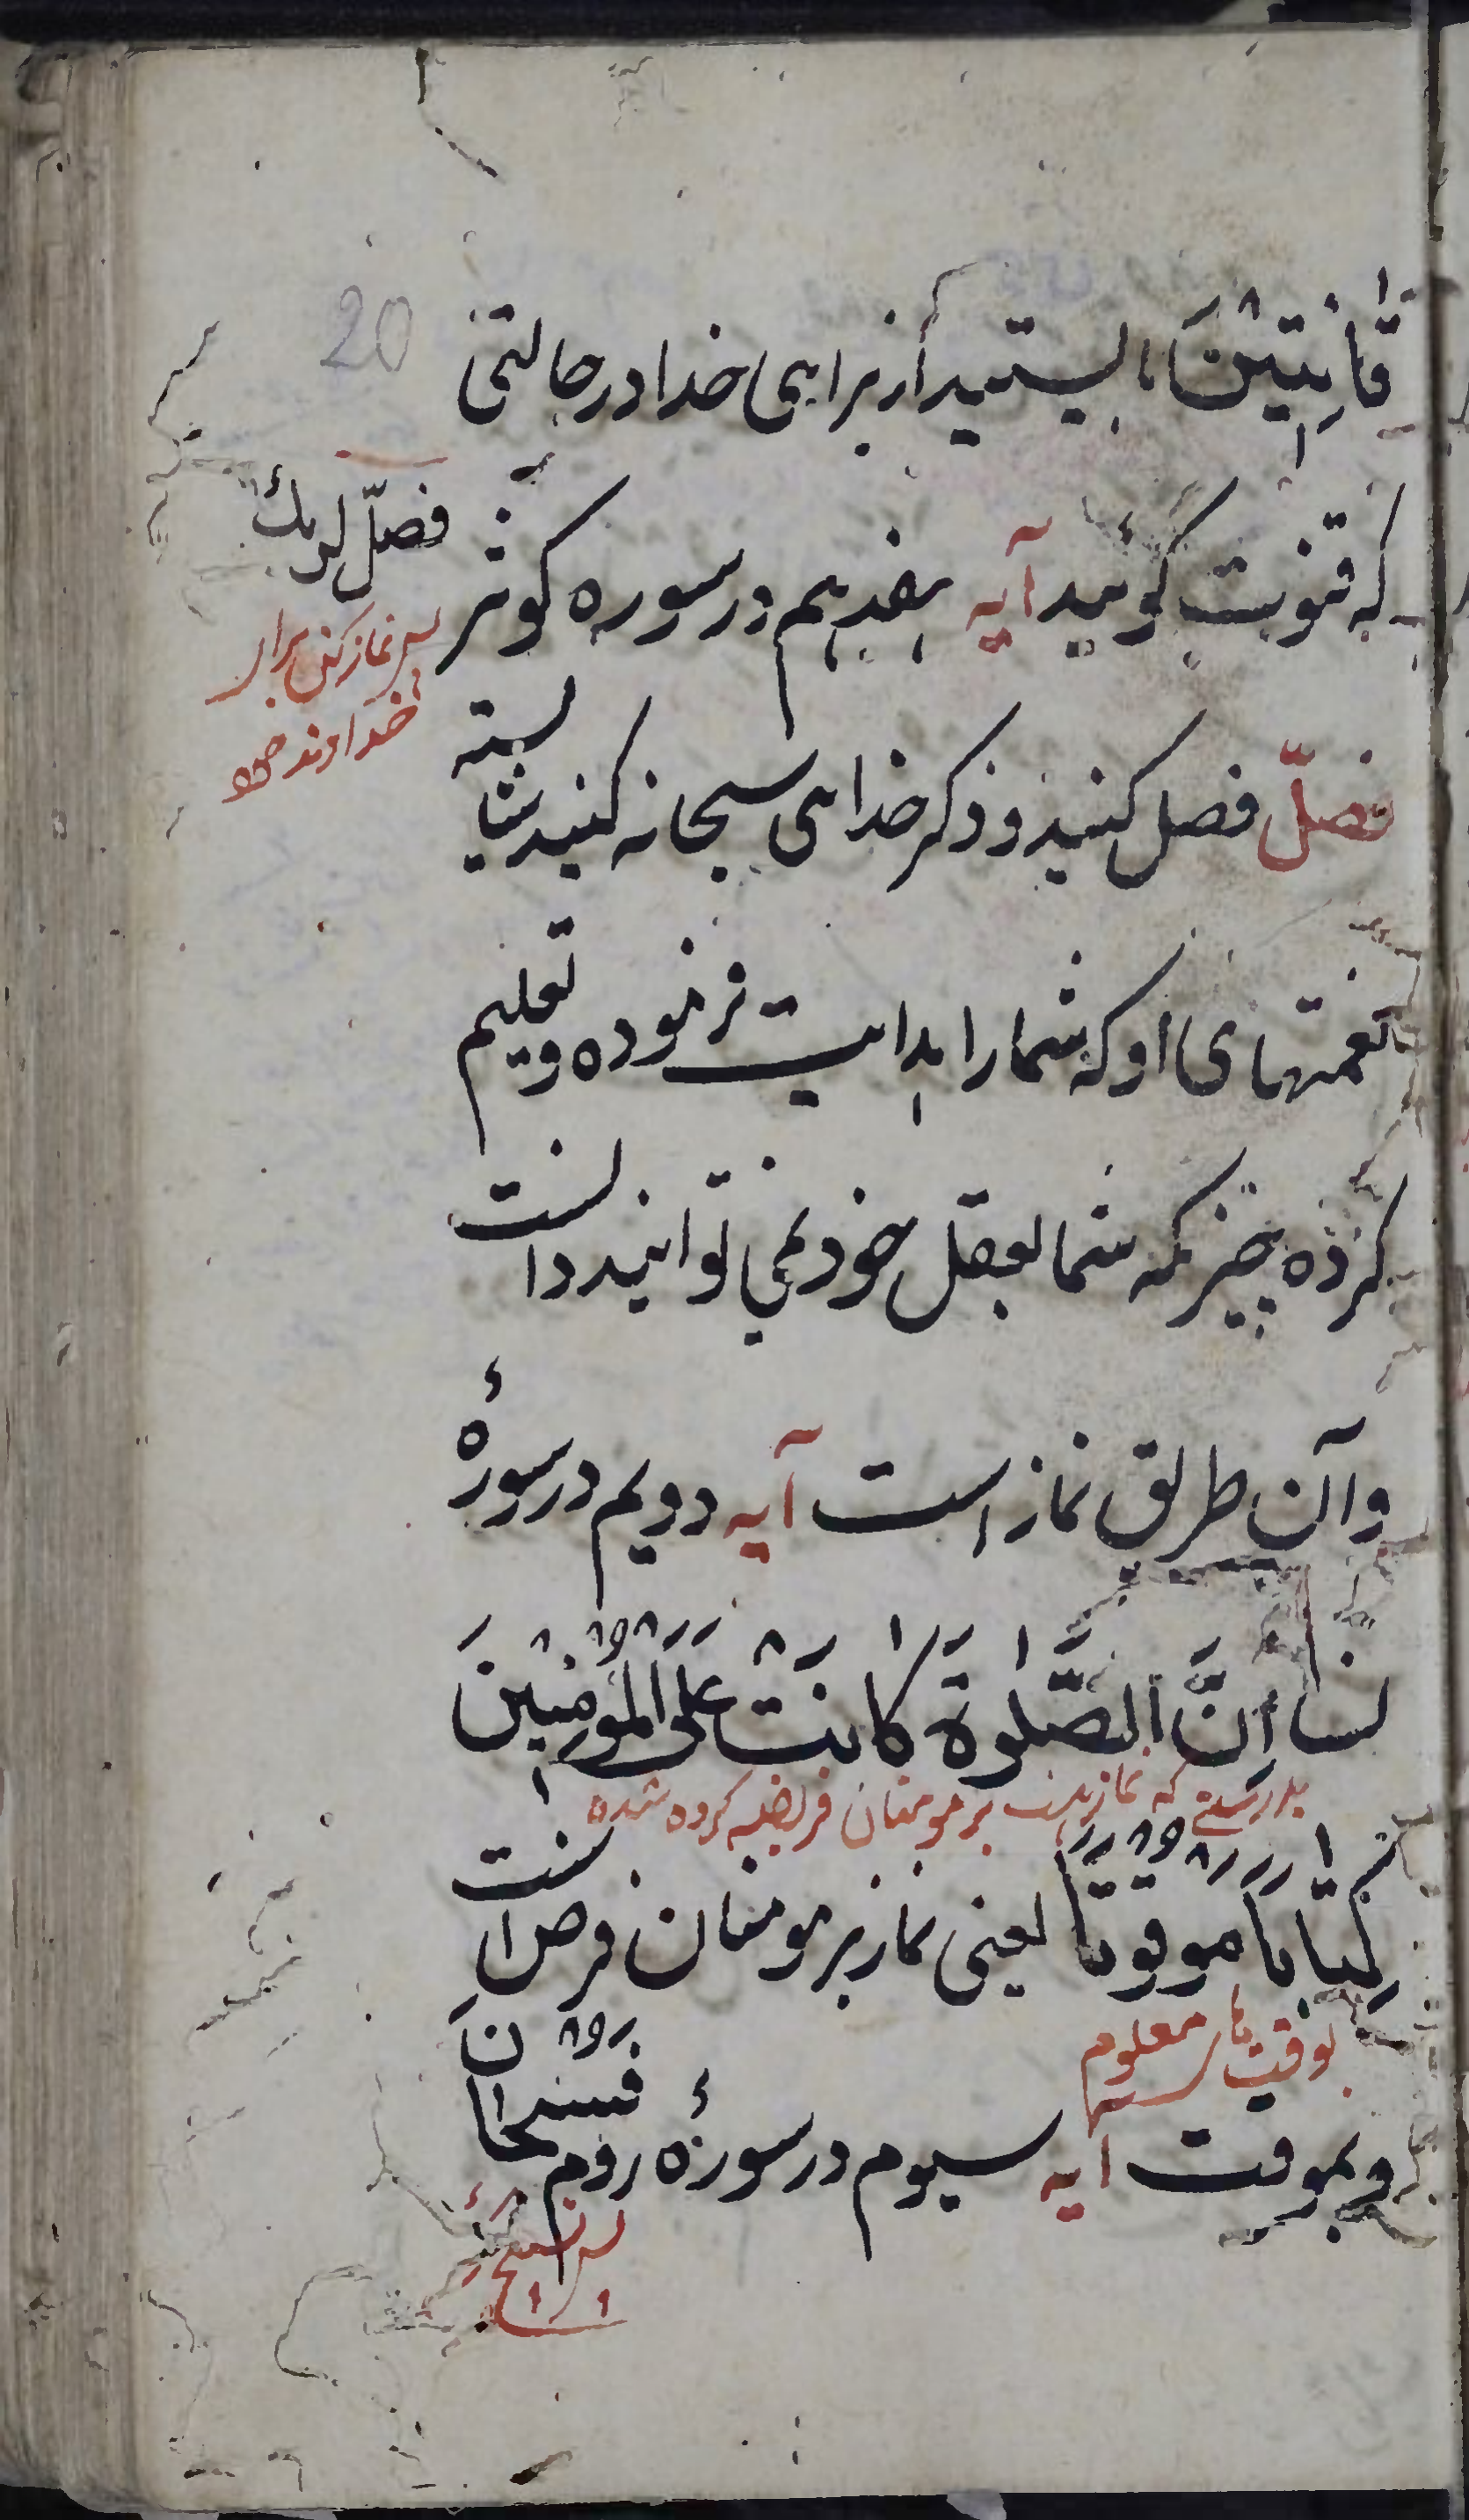 20
قَانِتِیْنَ بایستید از برای خدا در حالتی
که قنوت گوئید آیه هفدهم در سوره کوثر
فصلّ لربك
پس نماز کن برای
خداوند خود
فصلّ فصل کنید و ذکر خدای سبحانه کنید شایسته
نعمتهای او که شما را هدایت فرموده و تعلیم
کرده بچیز که شما بعقل خود نمی توانید دانست
و آن طریق نماز است آیه دویم در سورهٔ
نسا اِنَّ الصَّلٰوةَ کَانَتْ عَلَی الْمُؤْمِنِیْنَ
بدرستی که نماز هست بر مومنان فریضه کرده شده
کِتَابًا مَوْقُوْتًا یعنی نماز بر مومنان فرض است
بوقت های معلوم
و بموقت آیه سیوم در سورهٔ روم فسبحانَ
پس تسبیح